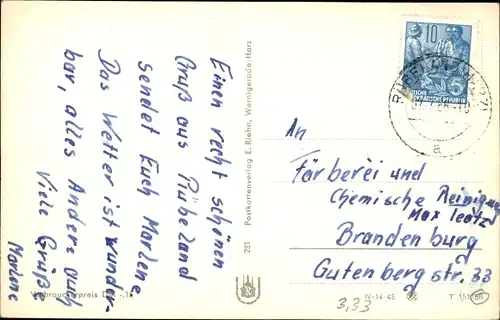 Einen recht schönen
Gruß aus Rübeland
sendet Euch Marlene
Das Wetter ist wunder-
bar, alles Andere auch
Viele Grüße
Marlene
Verbraucherpreis
281 Postkartenverlag E. Riehn, Wernigerode-Harz
10
DEUTSCHE
DEMOKRATISCHE REPUBLIK
a
An
Färberei und
Chemische Reinigung
Max
Brandenburg
Gutenbergstr. 33
IV-14-45
3,33